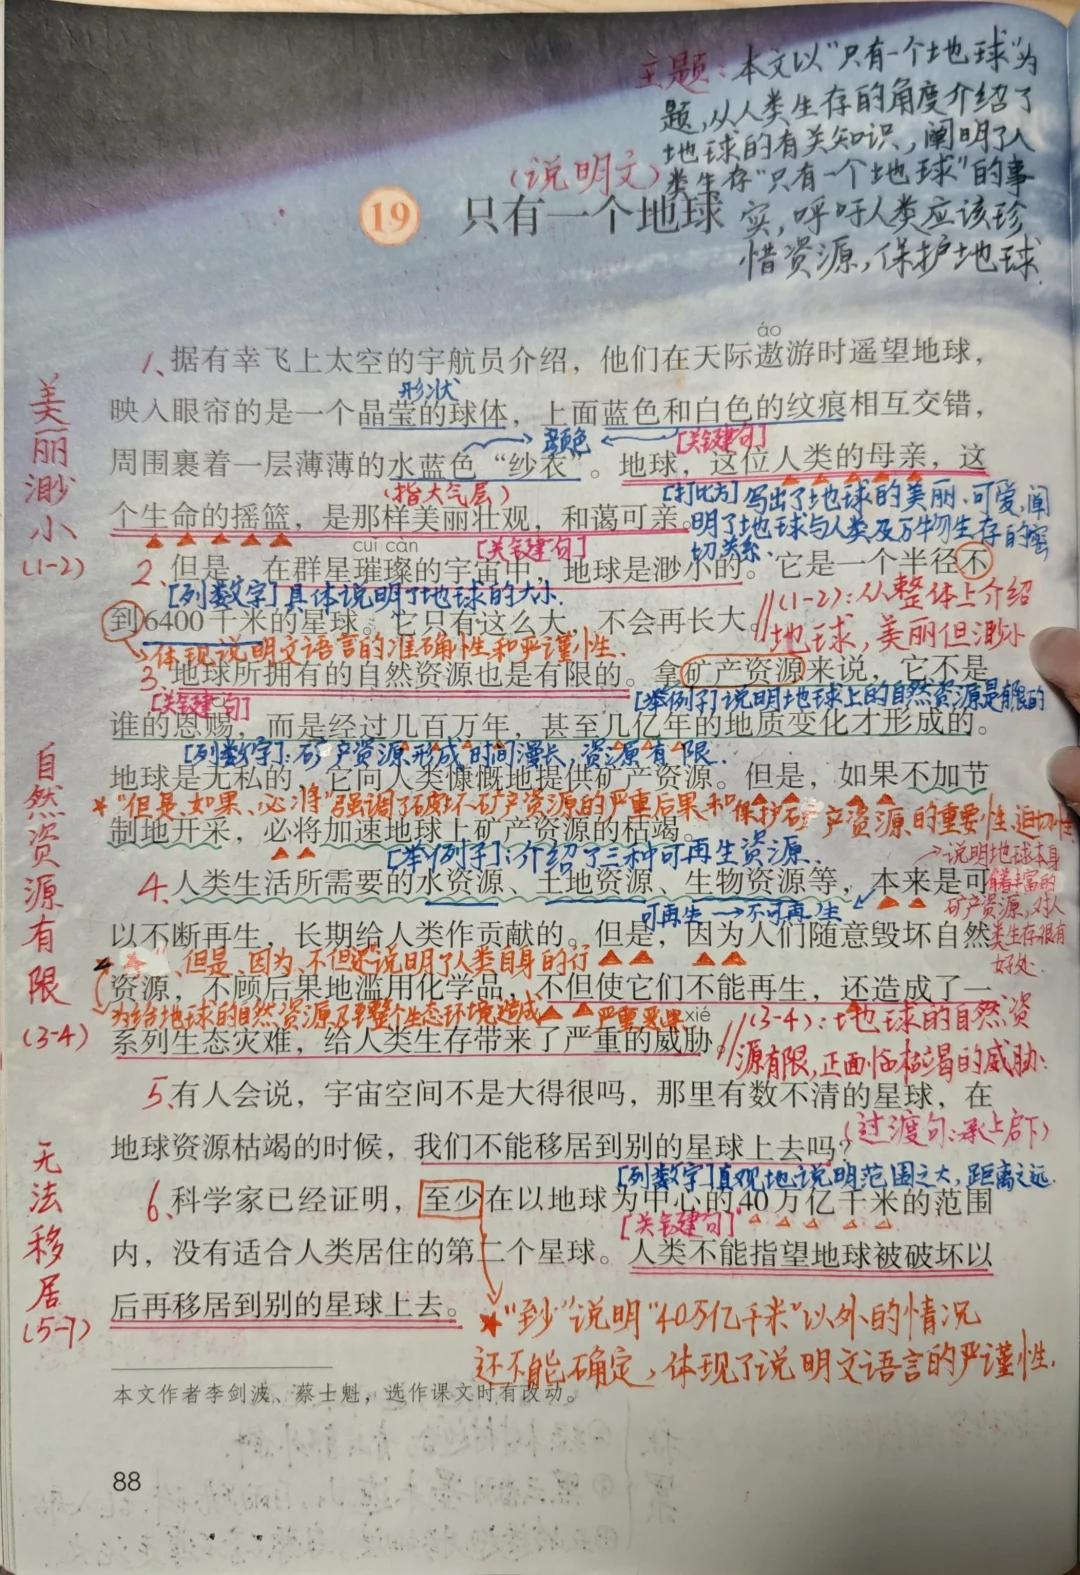 主题:本文以“只有一个地球”为
题,从人类生存的角度介绍了
地球的有关知识,阐明了人
类生存“只有一个地球”的事
实,呼吁人类应该珍
惜资源,保护地球.
(说明文)
19 只有一个地球
áo
1、据有幸飞上太空的宇航员介绍，他们在天际遨游时遥望地球，
形状
映入眼帘的是一个晶莹的球体，上面蓝色和白色的纹痕相互交错，
颜色
[关键句]
周围裹着一层薄薄的水蓝色“纱衣”。地球，这位人类的母亲，这
(指大气层)
[打比方]写出了地球的美丽、可爱,阐
明了地球与人类及万物生存的密
切关系.
个生命的摇篮，是那样美丽壮观，和蔼可亲。
cuǐ càn
[关键句]
2、但是，在群星璀璨的宇宙中，地球是渺小的。它是一个半径不
[列数字]具体说明了地球的大小.
到6400千米的星球。它只有这么大，不会再长大。
//(1-2):从整体上介绍
地球,美丽但渺小
体现说明文语言的准确性和严谨性.
美丽渺小
(1-2)
3、地球所拥有的自然资源也是有限的。拿矿产资源来说，它不是
[关键句]
[举例子]说明地球上的自然资源是有限的
谁的恩赐，而是经过几百万年，甚至几亿年的地质变化才形成的。
[列数字]:矿产资源形成时间漫长,资源有限.
地球是无私的，它向人类慷慨地提供矿产资源。但是，如果不加节
★“但是、如果、必将”强调了破坏矿产资源的严重后果和保护矿产资源的重要性、迫切性
制地开采，必将加速地球上矿产资源的枯竭。
[举例子]:介绍了三种可再生资源.
说明地球本身
有着丰富的
矿产资源,对人
类生存很有
好处.
4、人类生活所需要的水资源、土地资源、生物资源等，本来是可
可再生→不可再生
以不断再生，长期给人类作贡献的。但是，因为人们随意毁坏自然
、但是、因为、不但还说明了人类自身的行
资源，不顾后果地滥用化学品，不但使它们不能再生，还造成了一
为给地球的自然资源乃至整个生态环境造成严重恶果
xié
系列生态灾难，给人类生存带来了严重的威胁。
//(3-4):地球的自然资
源有限,正面临枯竭的威胁:
自然资源有限
(3-4)
5、有人会说，宇宙空间不是大得很吗，那里有数不清的星球，在
(过渡句:承上启下)
地球资源枯竭的时候，我们不能移居到别的星球上去吗？
[列数字]直观地说明范围之大,距离之远.
6、科学家已经证明，至少在以地球为中心的40万亿千米的范围
[关键句]
内，没有适合人类居住的第二个星球。人类不能指望地球被破坏以
后再移居到别的星球上去。
★“至少”说明“40万亿千米”以外的情况
还不能确定,体现了说明文语言的严谨性.
无法移居
(5-7)
本文作者李剑波、蔡士魁，选作课文时有改动。
88